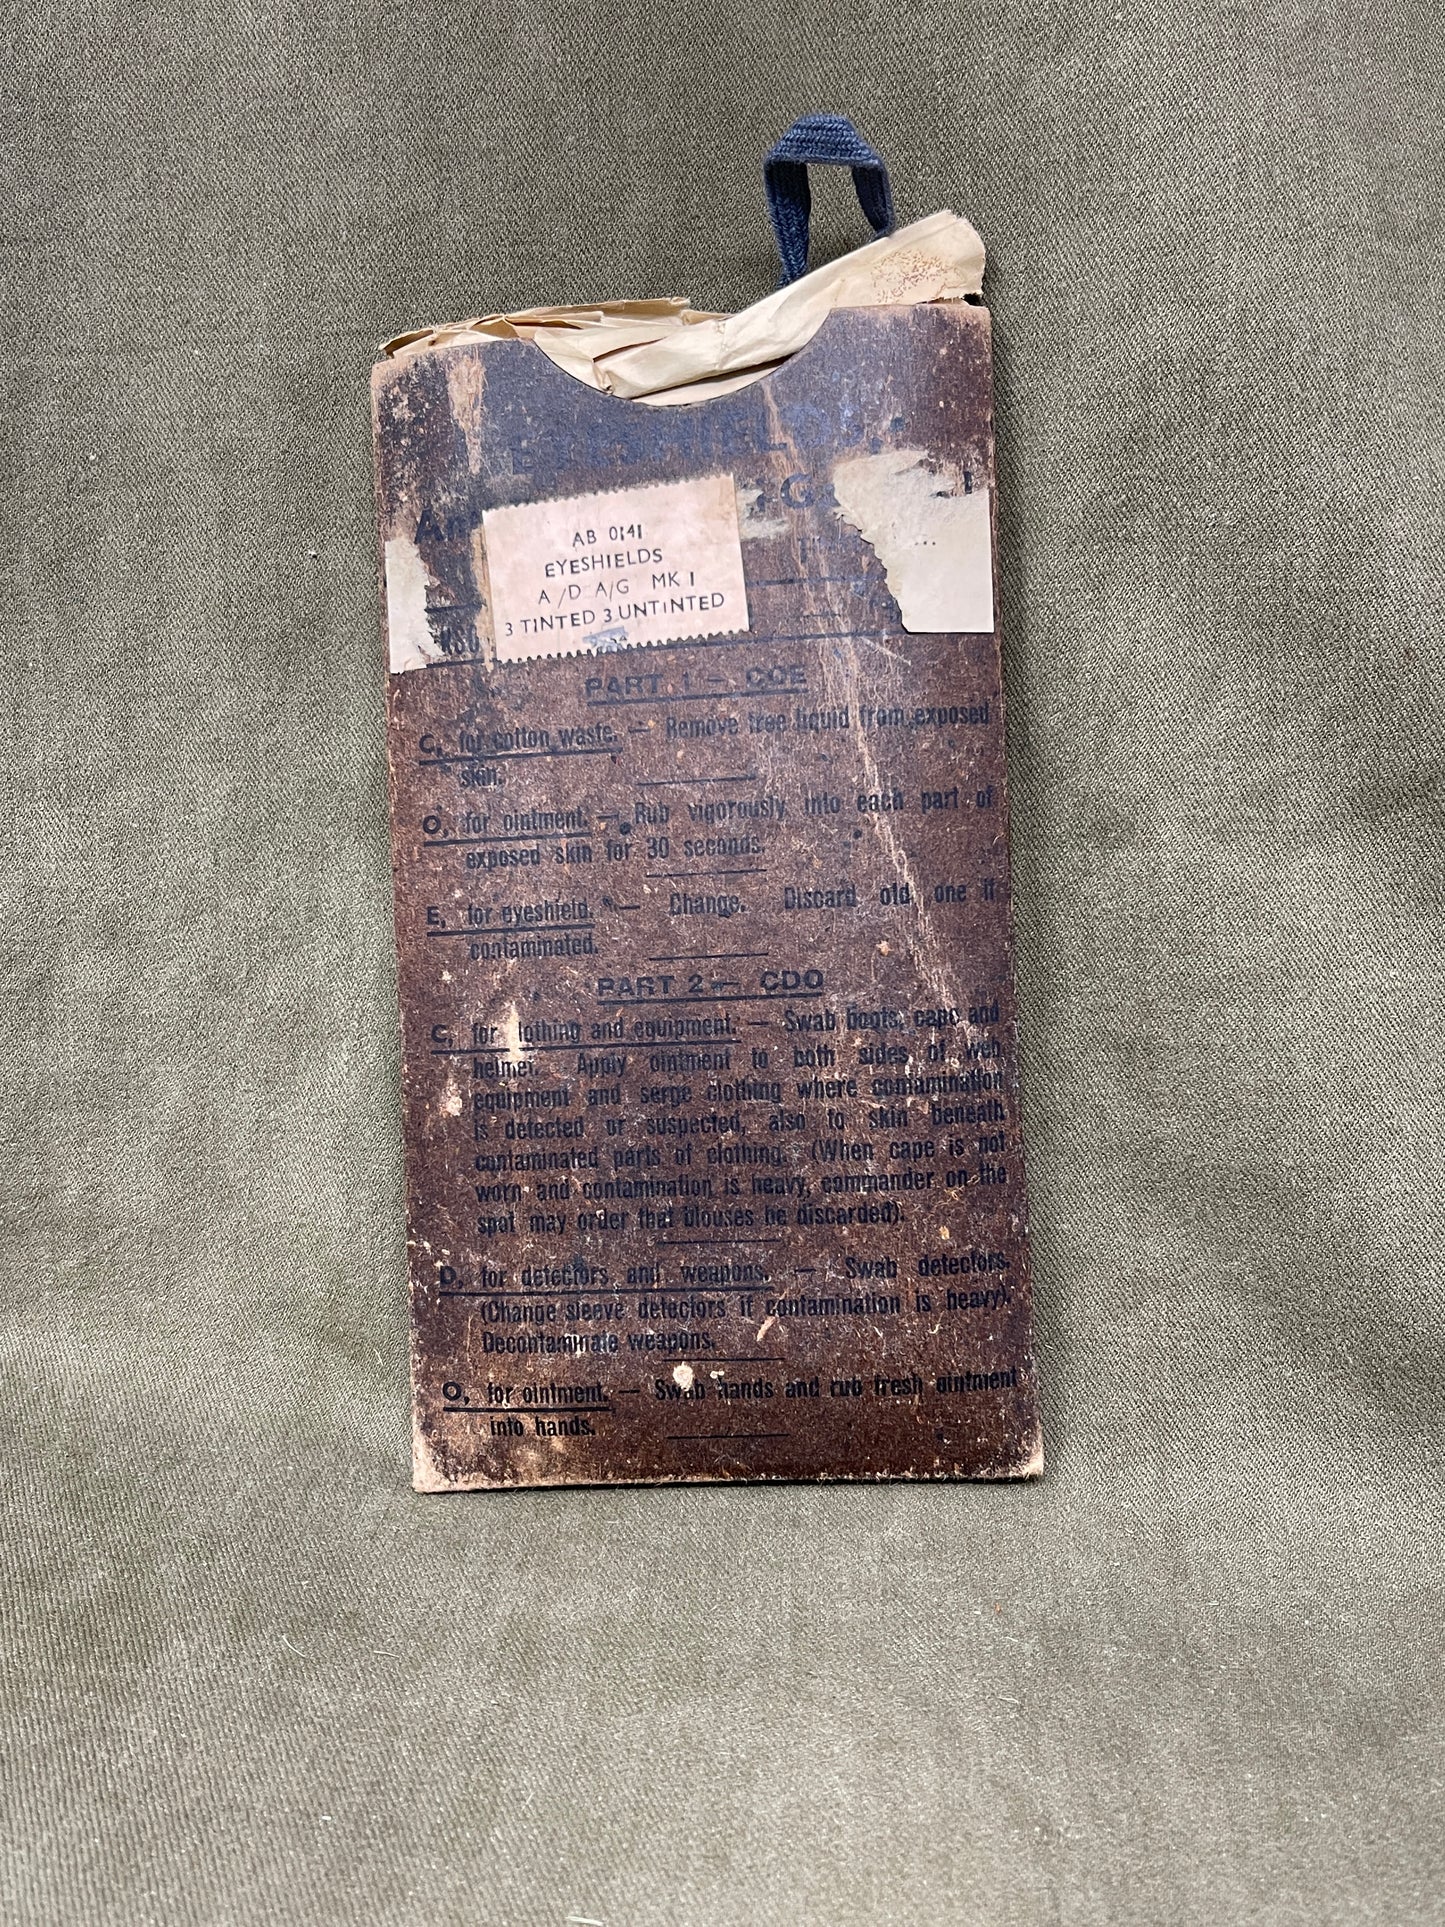 EYESHIELDS,
AB 0141
EYESHIELDS
A/D A/G MK 1
3 TINTED 3 UNTINTED
PART 1 — COE
C, for cotton waste. — Remove free liquid from exposed
skin.
O, for ointment. — Rub vigorously into each part of
exposed skin for 30 seconds.
E, for eyeshield. — Change. Discard old one if
contaminated.
PART 2 — CDO
C, for clothing and equipment. — Swab boots, cape and
helmet. Apply ointment to both sides of web
equipment and serge clothing where contamination
is detected or suspected, also to skin beneath
contaminated parts of clothing. (When cape is not
worn and contamination is heavy, commander on the
spot may order that blouses be discarded).
D, for detectors and weapons. — Swab detectors.
(Change sleeve detectors if contamination is heavy).
Decontaminate weapons.
O, for ointment. — Swab hands and rub fresh ointment
into hands.